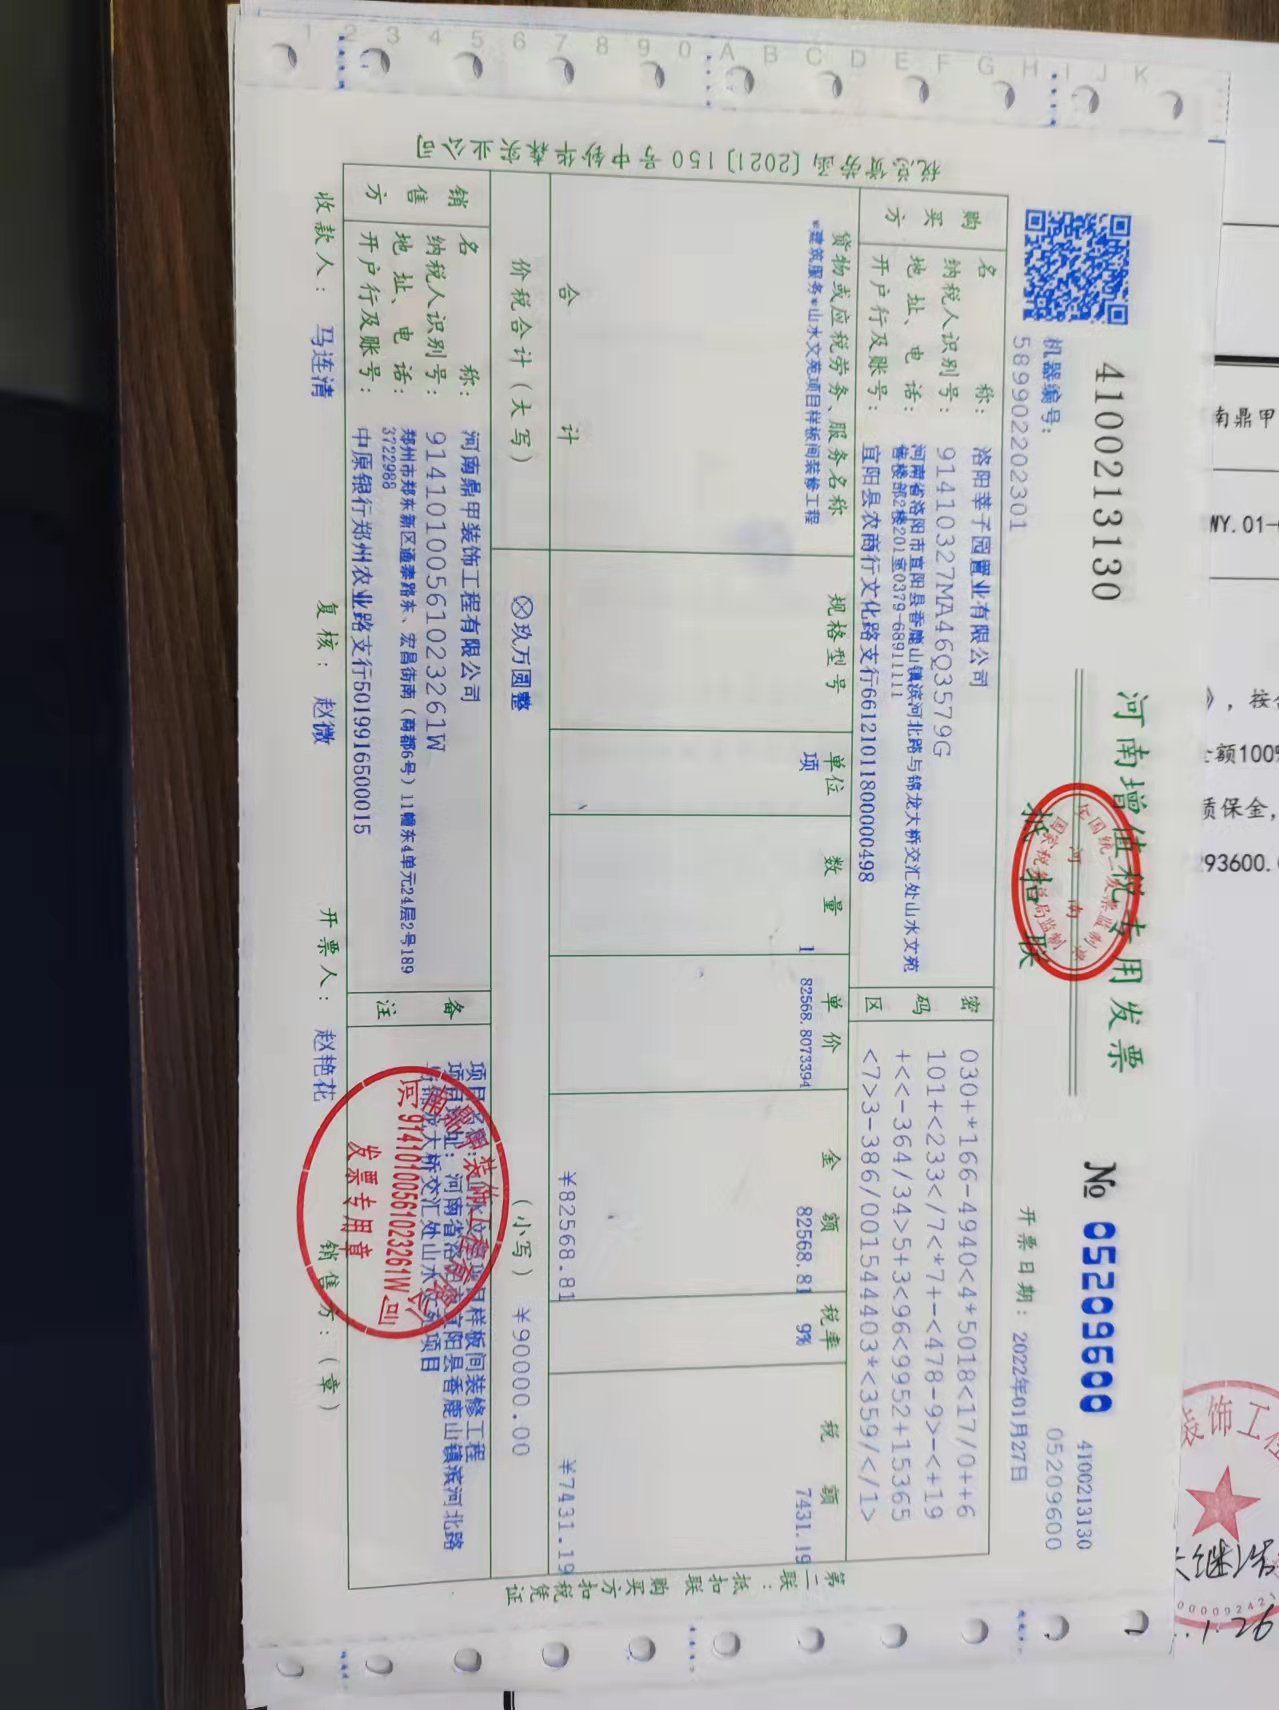 1 2 3 4 5 6 7 8 9 0 A B C D E F G H I J K
4100213130
河南增值税专用发票
№ 05209600
4100213130
05209600
机器编号:
589902202301
抵扣联
开票日期: 2022年01月27日
税总货劳函〔2021〕150号中钞华森实业公司
购买方
名称: 洛阳莘子园置业有限公司
纳税人识别号: 91410327MA46Q3579G
地址、电话: 河南省洛阳市宜阳县香鹿山镇滨河北路与锦龙大桥交汇处山水文苑
售楼部2楼201室0379-68911111
开户行及账号: 宜阳县农商行文化路支行66121011800000498
密码区
030+*166-4940<4*5018<17/0++6
101+<233</7<*7+-<478-9>-<+19
+<<-364/34>5+3<96<9952+15365
<7>3-386/001544403*<359/</1>
货物或应税劳务、服务名称 规格型号 单位 数量 单价 金额 税率 税额
*建筑服务*山水文苑项目样板间装修工程 项 1 82568.8073394 82568.81 9% 7431.19
合计 ¥82568.81 ¥7431.19
价税合计(大写) ⊗玖万圆整 (小写) ¥90000.00
销售方
名称: 河南鼎甲装饰工程有限公司
纳税人识别号: 91410100561023261W
地址、电话: 郑州市郑东新区通泰路东、宏昌街南(商都6号)11幢东4单元24层2号189
3722988
开户行及账号: 中原银行郑州农业路支行501991650​0015
备注
项目样板间装修工程
河南省洛阳市宜阳县香鹿山镇滨河北路
锦龙大桥交汇处山水文苑项目
91410100561023261W
发票专用章
收款人: 马连清 复核: 赵微 开票人: 赵艳花 销售方:(章)
第二联:抵扣联 购买方扣税凭证
南鼎甲
WY.01-
》,按
金额100%
质保金,
293600.
装饰工程
1.26